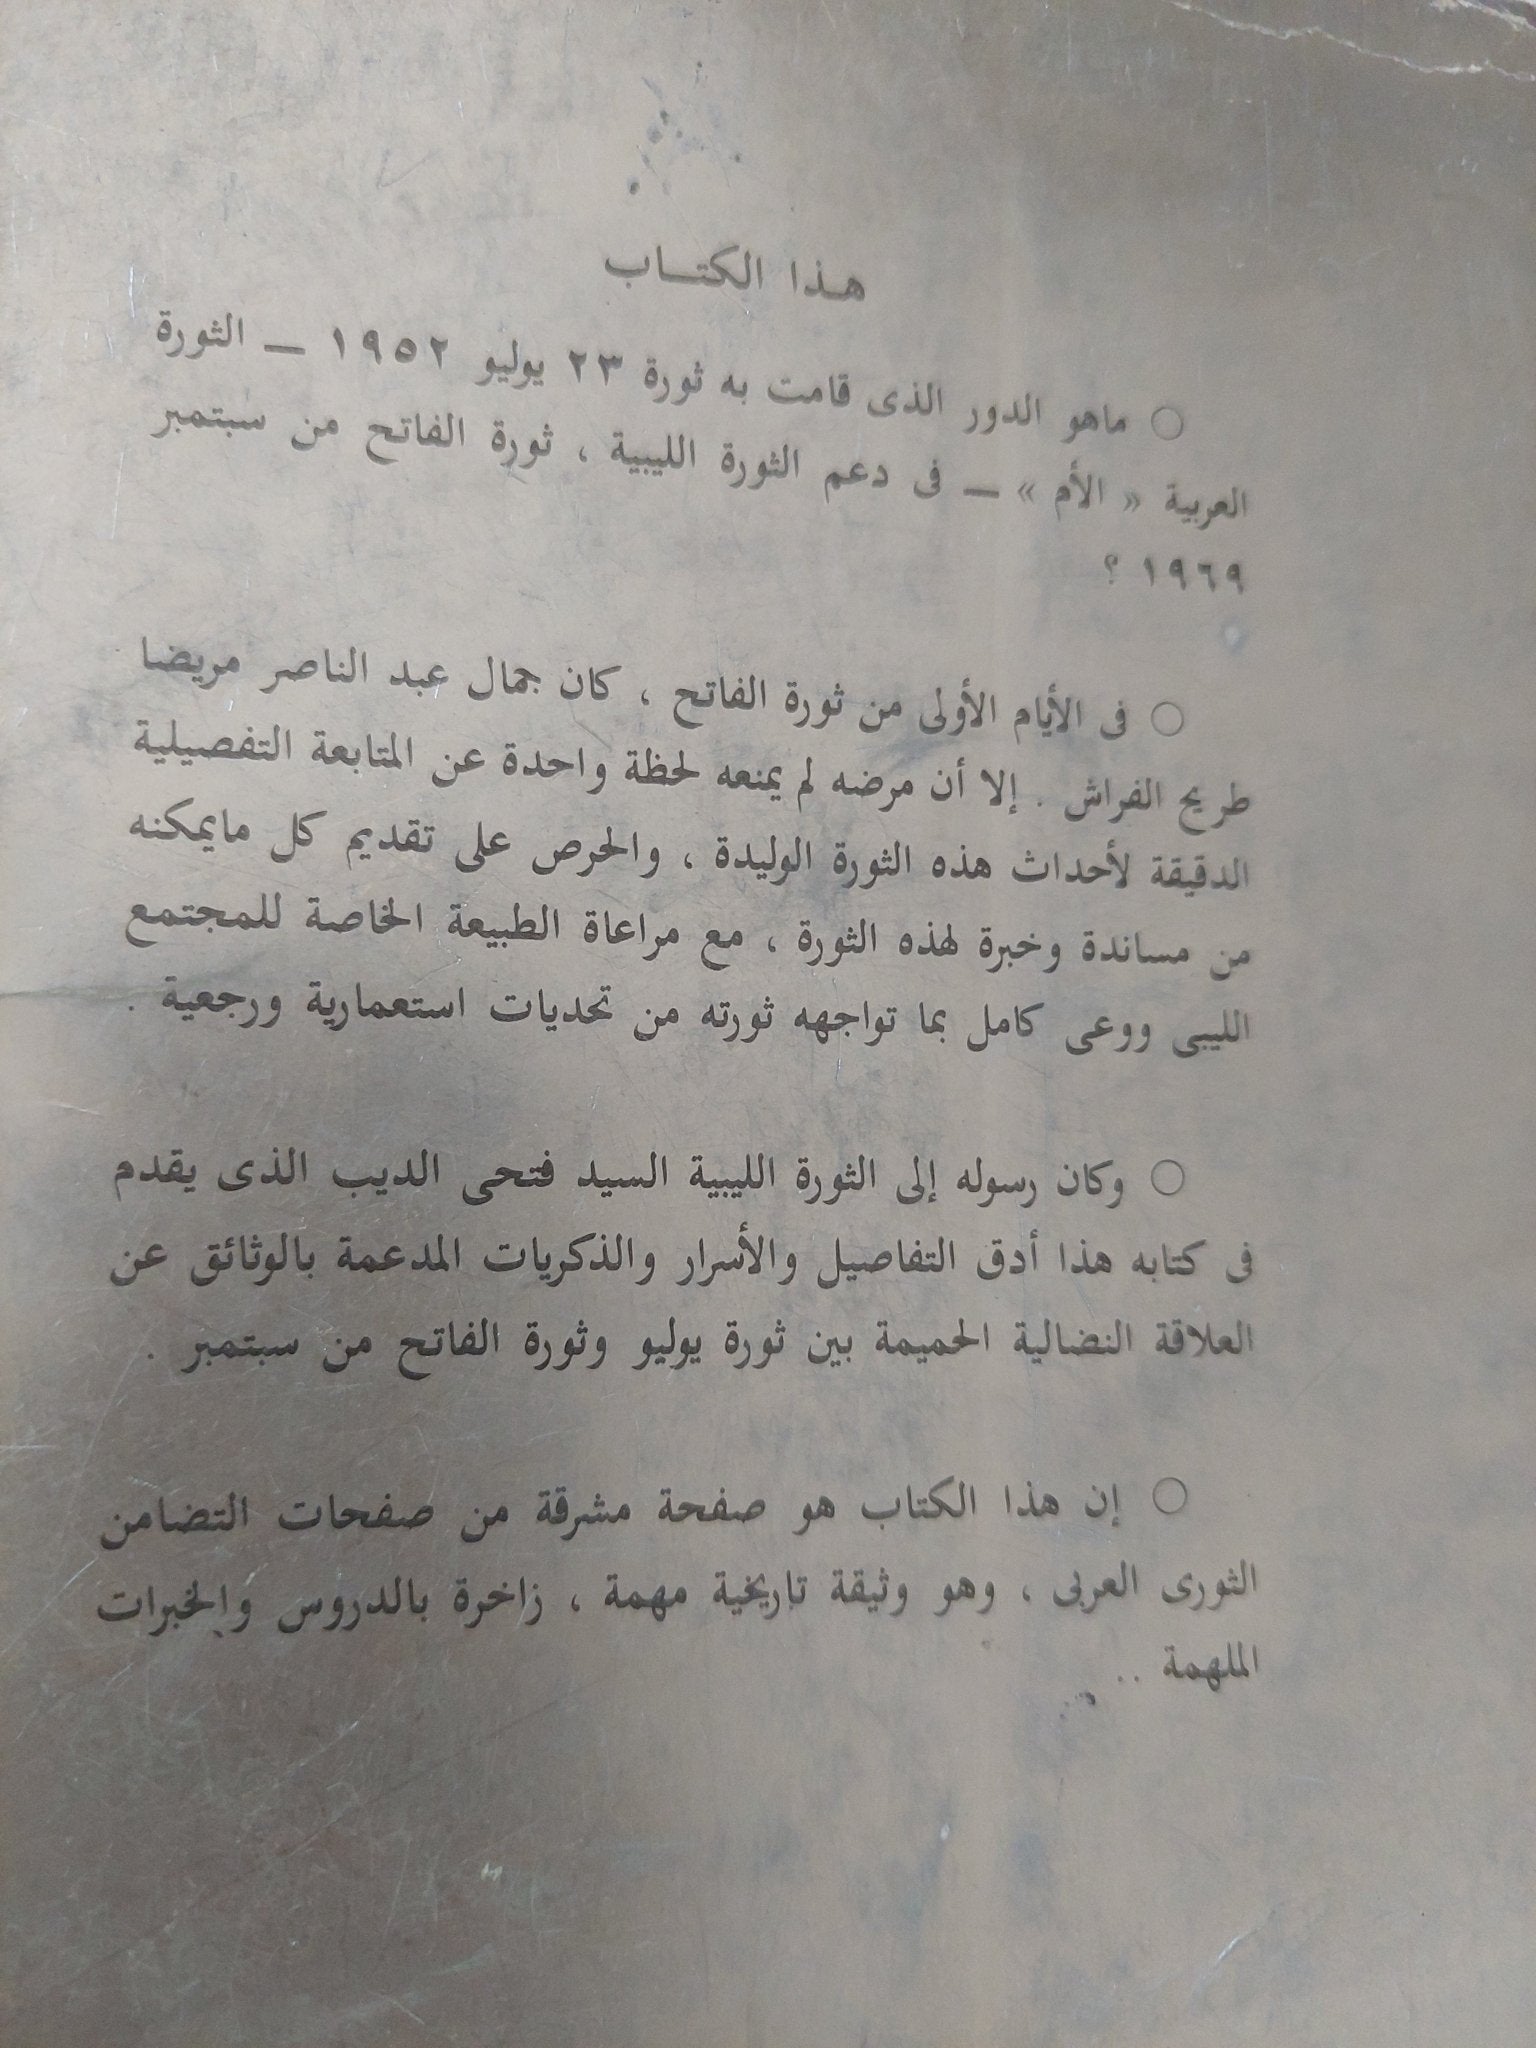 هذا الكتاب
○ ماهو الدور الذى قامت به ثورة ٢٣ يوليو ١٩٥٢ — الثورة
العربية « الأم » — فى دعم الثورة الليبية ، ثورة الفاتح من سبتمبر
١٩٦٩ ؟
○ فى الأيام الأولى من ثورة الفاتح ، كان جمال عبد الناصر مريضا
طريح الفراش . إلا أن مرضه لم يمنعه لحظة واحدة عن المتابعة التفصيلية
الدقيقة لأحداث هذه الثورة الوليدة ، والحرص على تقديم كل مايمكنه
من مساندة وخبرة لهذه الثورة ، مع مراعاة الطبيعة الخاصة للمجتمع
الليبى ووعى كامل بما تواجهه ثورته من تحديات استعمارية ورجعية .
○ وكان رسوله إلى الثورة الليبية السيد فتحى الديب الذى يقدم
فى كتابه هذا أدق التفاصيل والأسرار والذكريات المدعمة بالوثائق عن
العلاقة النضالية الحميمة بين ثورة يوليو وثورة الفاتح من سبتمبر .
○ إن هذا الكتاب هو صفحة مشرقة من صفحات التضامن
الثورى العربى ، وهو وثيقة تاريخية مهمة ، زاخرة بالدروس والخبرات
الملهمة ..